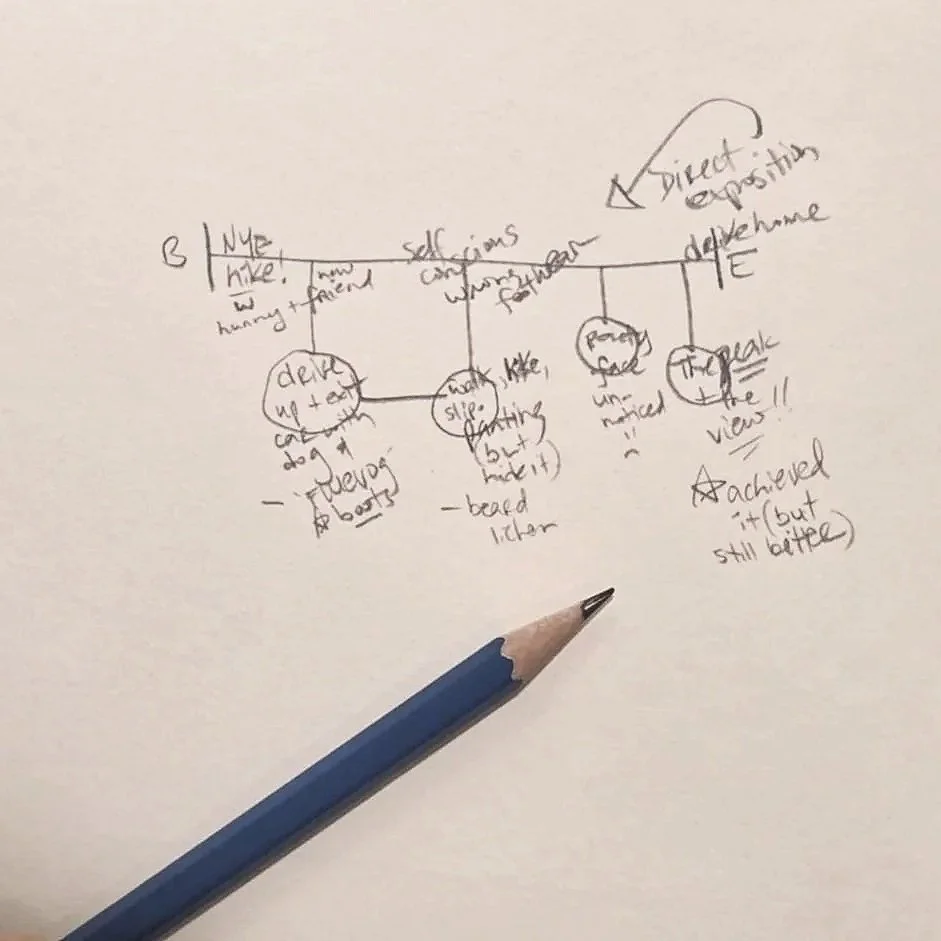 Direct
exposition
B
NYE
hike!
w
hunny +
new
friend
self
conscious
wrong
footwear
drive home
E
drive
up + exit
car with
dog
- fluevog
boots
walk, hike,
slip.
panting
(but
hide it)
- beard
lichen
pouty
face
un-
noticed
!!
The peak
+ the
view!!
☆ achieved
it (but
still bitter)